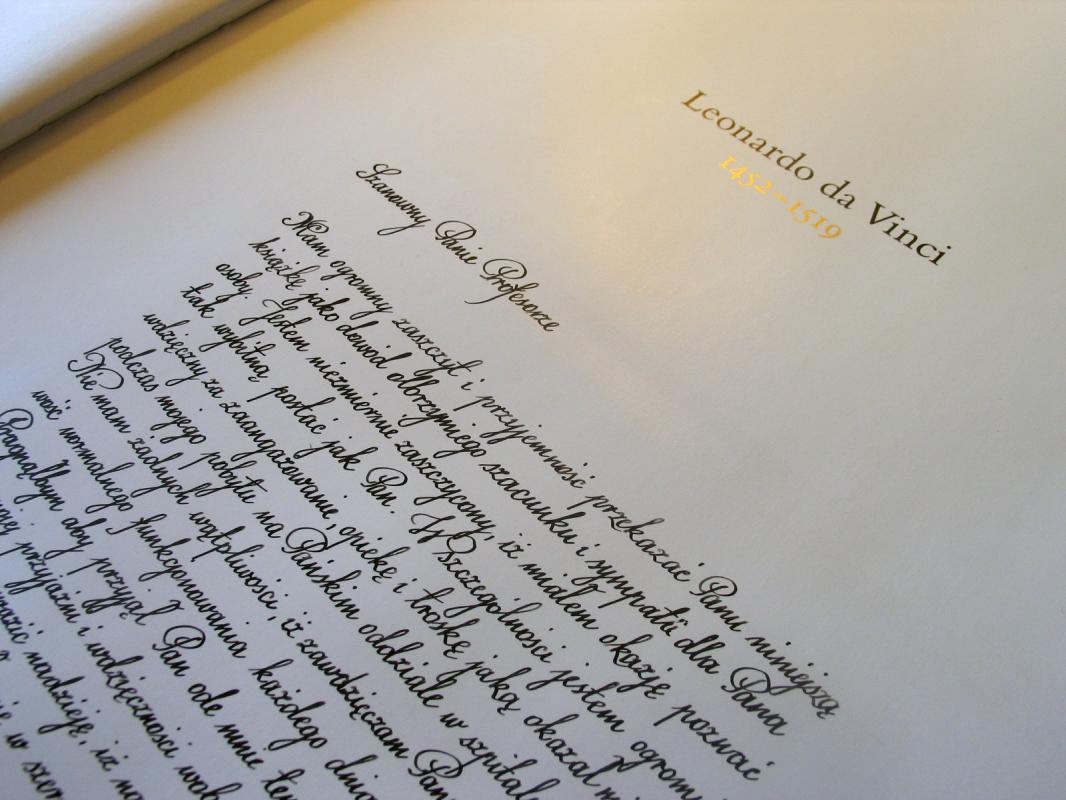 Leonardo da Vinci
1452–1519
Szanowny Panie Profesorze
Mam ogromny zaszczyt i przyjemność przekazać Panu niniejszą
książkę jako dowód olbrzymiego szacunku i sympatii dla Pana
osoby. Jestem niezmiernie zaszczycony, iż miałem okazję poznać
tak wybitną postać jak Pan. W Szczególności jestem ogrom
wdzięczny za zaangażowanie, opiekę i troskę jaką okazał
podczas mojego pobytu na Pańskim oddziale w szpital
Nie mam żadnych wątpliwości, iż zawdzięczam Pan
wość normalnego funkcjonowania każdego dnia
Pragnąłbym aby przyjął Pan ode mnie te
przyjaźni i wdzięczności wob
nadzieję, iż
w szer